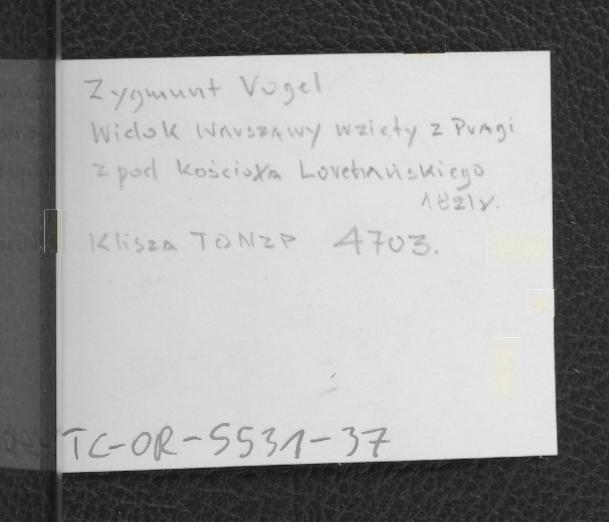 Zygmunt Vogel
Widok Warszawy wzięty z Pragi
z pod Kościoła Loretańskiego
1821r.
Klisza TONZP 4703.
TC-OR-5531-37